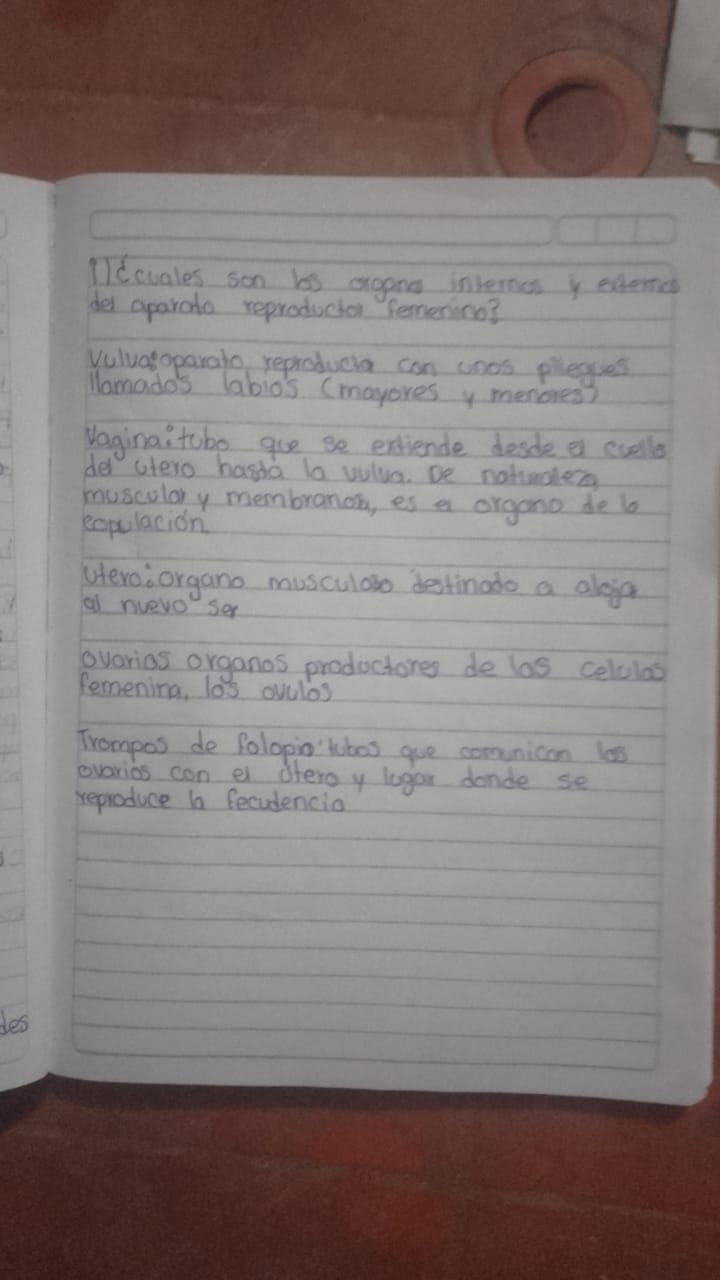 1) ¿cuales son los organos internos y externos
del aparato reproductor femenino?
Vulva: aparato reproductor con unos pliegues
llamados labios (mayores y menores)
Vagina: tubo que se extiende desde el cuello
del utero hasta la vulva. De naturaleza
muscular y membranosa, es el organo de la
copulación
Utero: organo musculoso destinado a aloja
al nuevo ser
ovarias organos productores de las celulas
femenina, los ovulos
Trompas de falopio: tubos que comunican los
ovarios con el útero y lugar donde se
reproduce la fecudencia
des